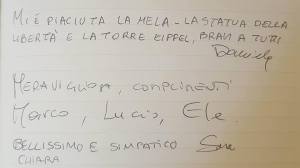 MI È PIACIUTA LA MELA - LA STATUA DELLA
LIBERTÀ E LA TORRE EIFFEL, BRAVI A TUTTI
Daniele
MERAVIGLIOSA, COMPLIMENTI
Marco, Lucio, Ele
BELLISSIMO E SIMPATICO Sara
CHIARA